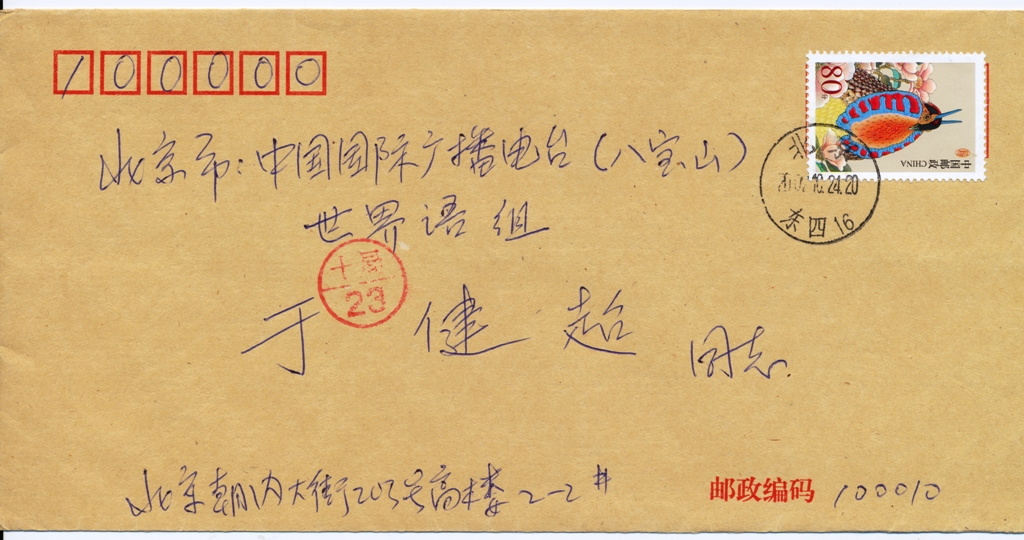 100000
80
中国邮政 CHINA
北京市：中国国际广播电台（八宝山）
10.24.20
东四 16
世界语组
十层
23
于健超 同志
北京朝内大街203号高楼2-2#
邮政编码 100010